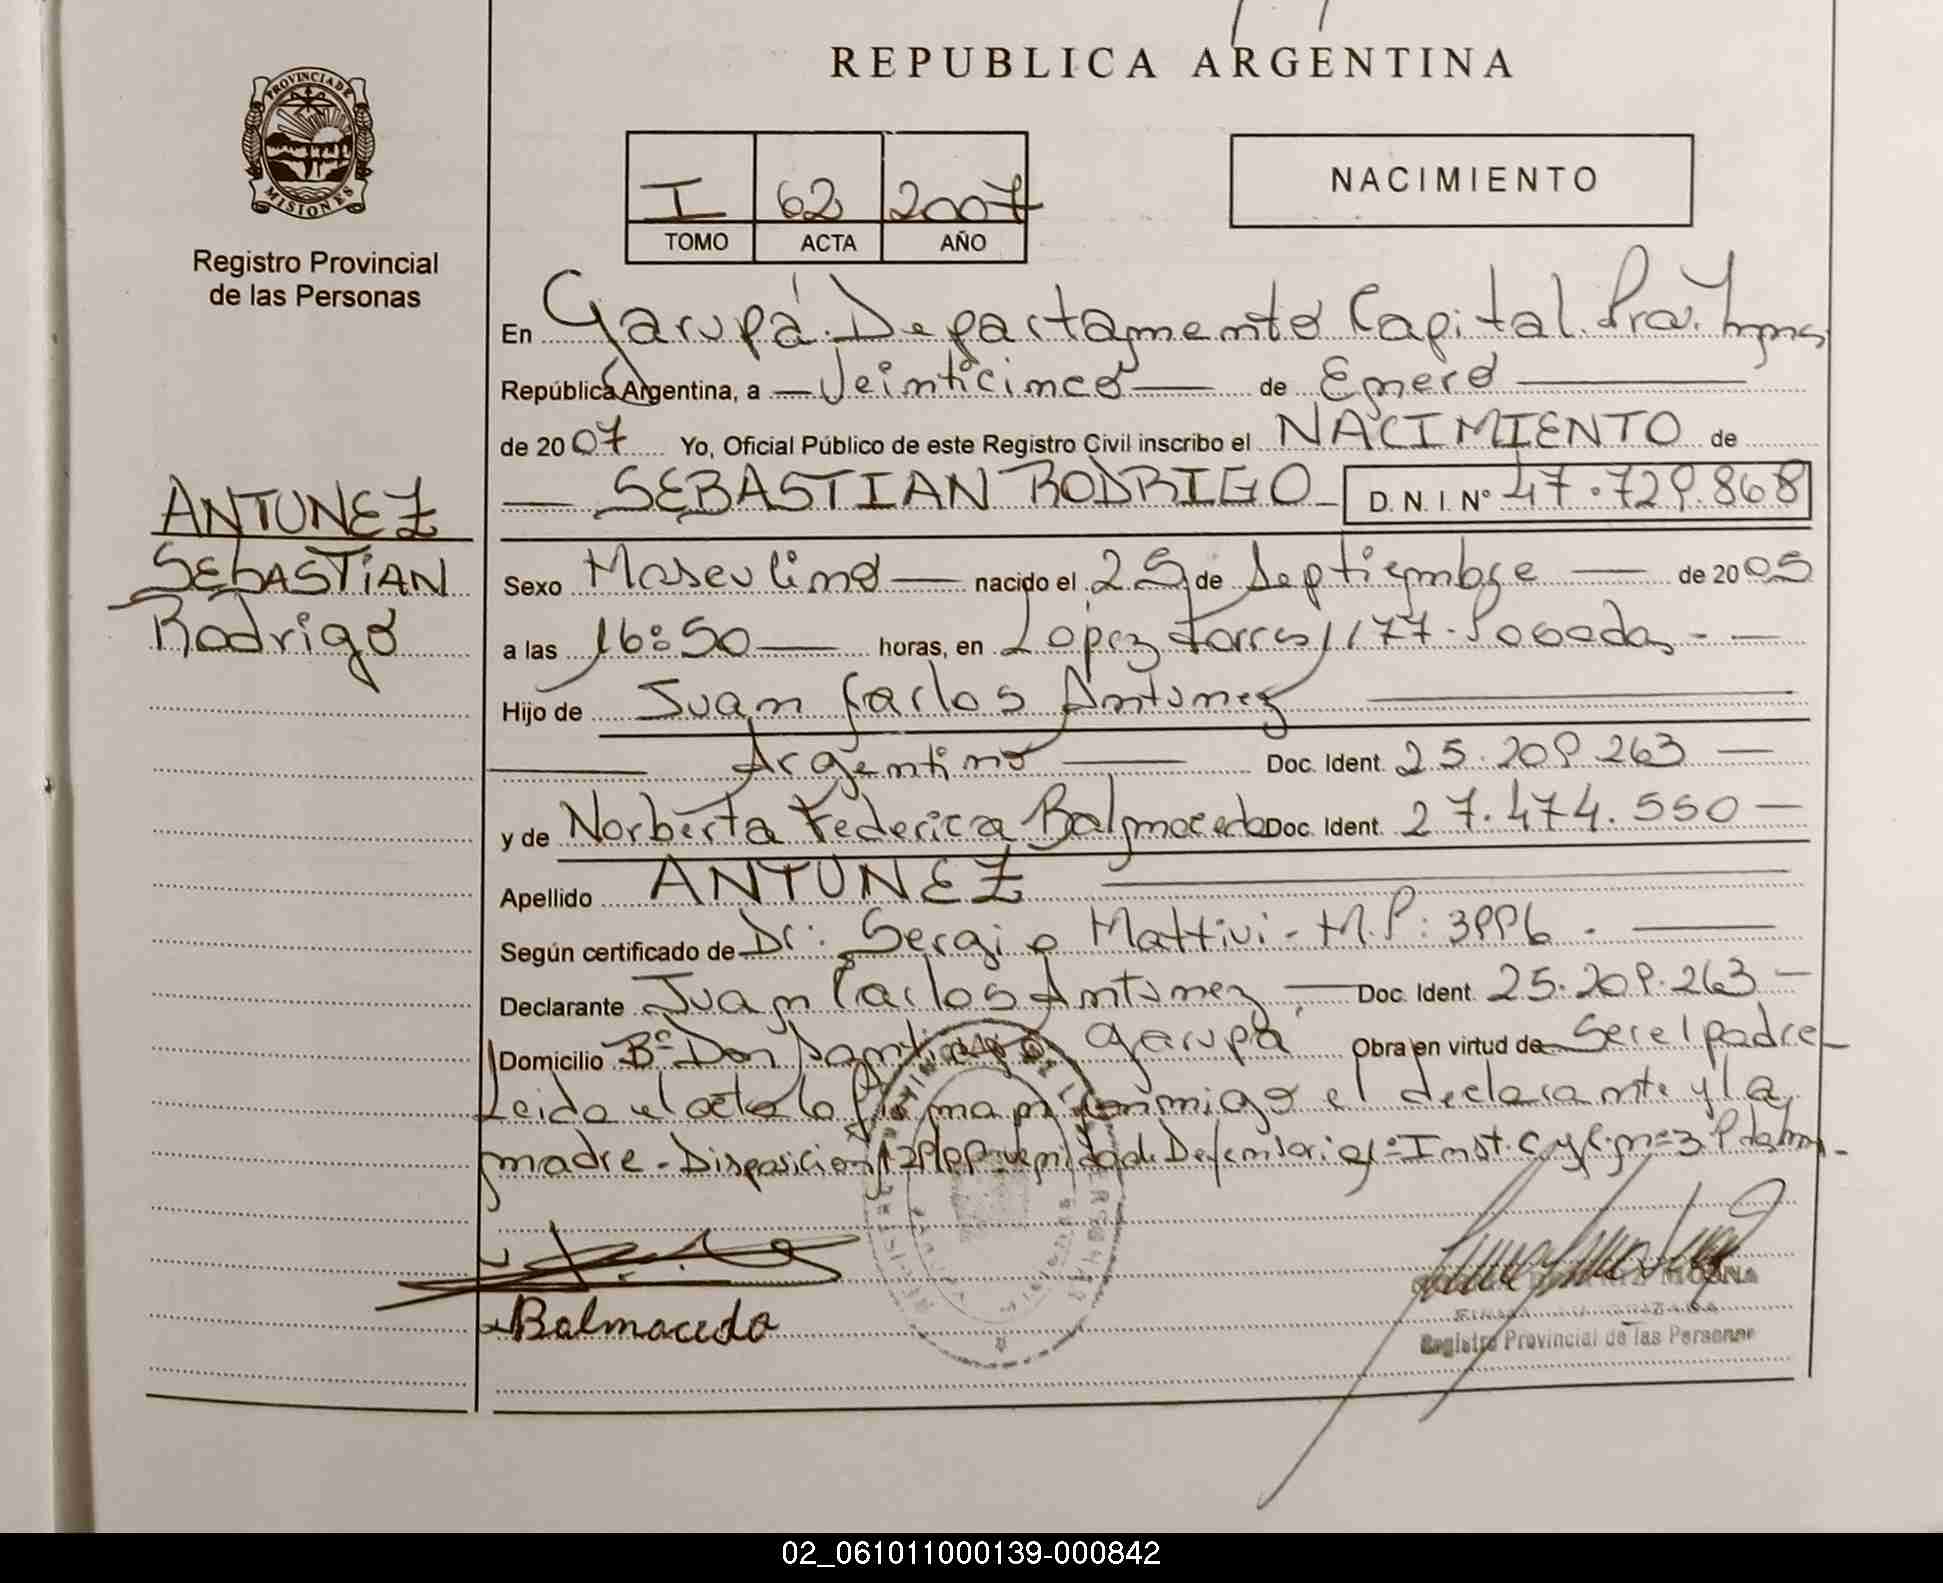 REPUBLICA ARGENTINA
PROVINCIA DE
MISIONES
Registro Provincial
de las Personas
I 62 2007
TOMO ACTA AÑO
NACIMIENTO
En Garupá. Departamento Capital. Prov.
República Argentina, a — Veinticinco — de Enero —
de 2007 Yo, Oficial Público de este Registro Civil inscribo el NACIMIENTO de
— SEBASTIAN RODRIGO — D. N. I. Nº 47.729.868
ANTUNEZ
SEBASTIAN
Rodrigo
Sexo Masculino — nacido el 25 de Septiembre — de 2005
a las 16:50 — horas, en López Torres 1177 - Posadas - —
Hijo de Juan Carlos Antunez
— Argentino — Doc. Ident. 25.209.263 —
y de Norberta Federica Balmaceda Doc. Ident. 27.474.550 —
Apellido ANTUNEZ
Según certificado de Dr: Sergio Mattivi - M.P: 3996 . —
Declarante Juan Carlos Antunez — Doc. Ident. 25.209.263 —
Domicilio Bº Don Santiago Garupá Obra en virtud de Ser el padre -
Leida el acta la firma conmigo el declarante y la
madre - Disposicion
Balmaceda
Registro Provincial de las Personas
02_061011000139-000842